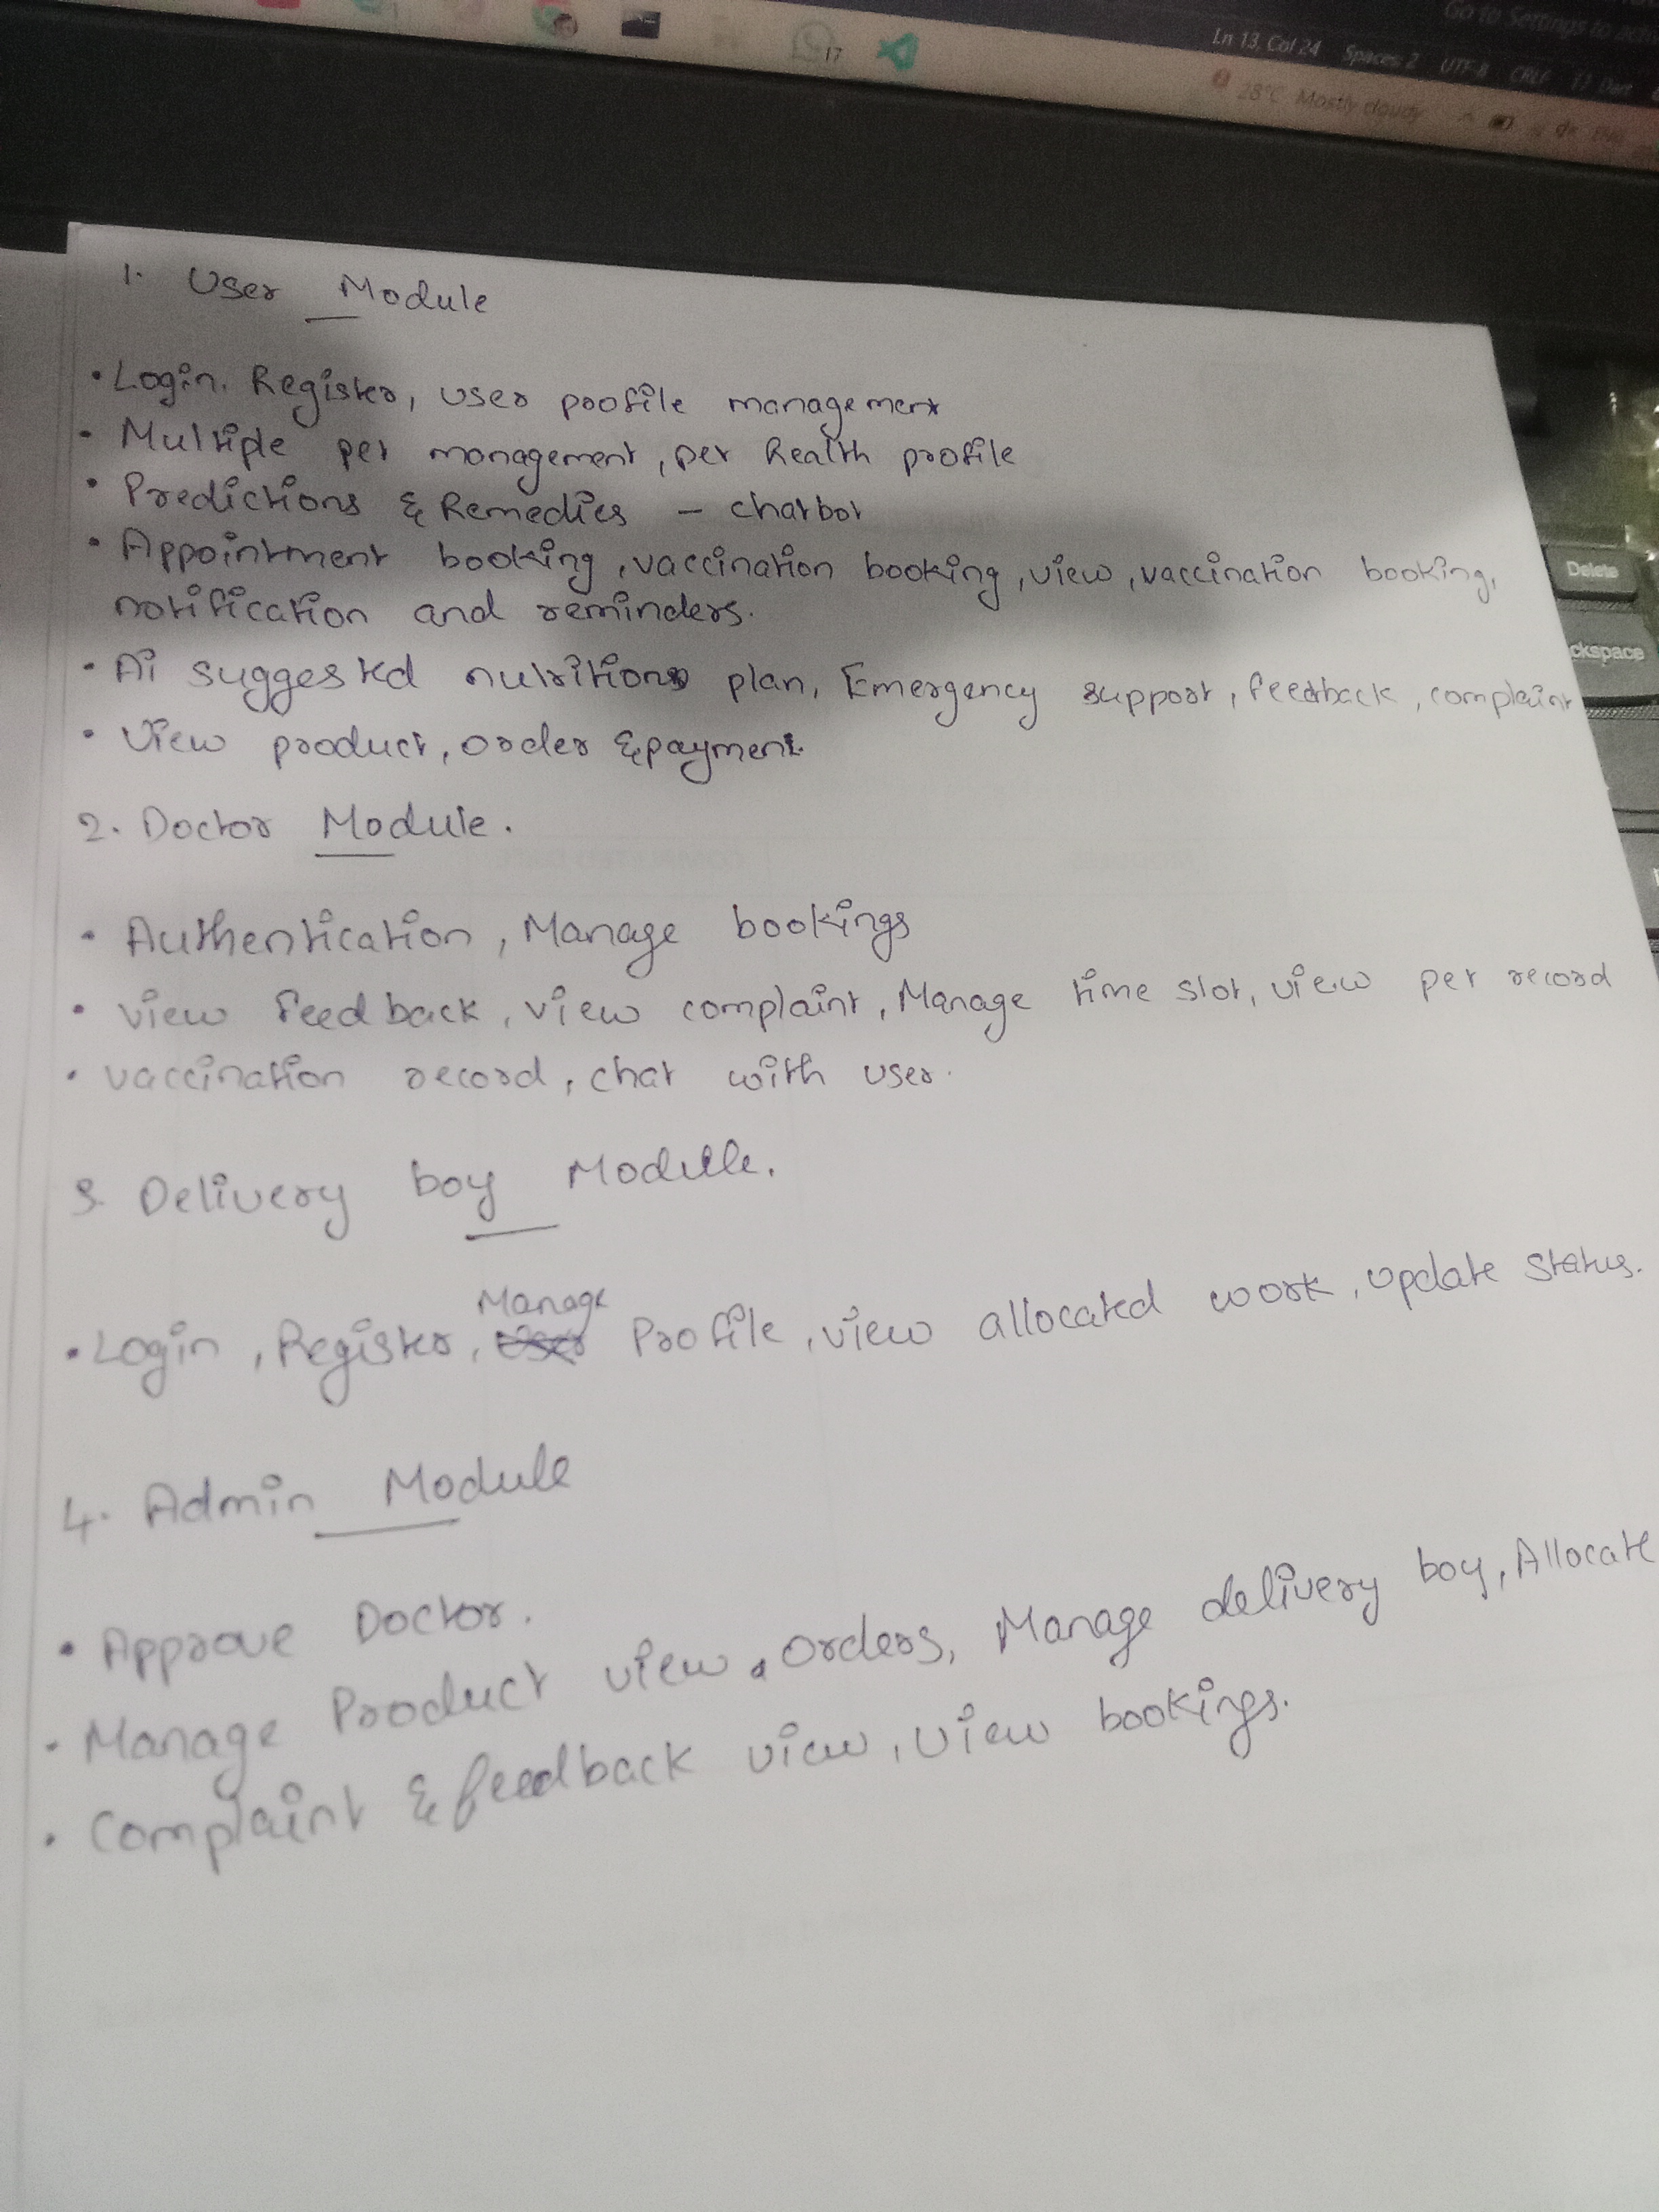 Go to Settings to acti
Ln 13, Col 24 Spaces: 2 UTF-8 CRLF {} Dart
17
28°C Mostly cloudy
1. User Module
• Login. Register, user profile management
• Multiple pet management, pet health profile
• Predictions & Remedies - chatbot
• Appointment booking, vaccination booking, view, vaccination booking,
notification and reminders.
• Ai suggested nutritions plan, Emergency support, feedback, complaint
• View product, order & payment.
2. Doctor Module.
• Authentication, Manage bookings
• view feedback, view complaint, Manage time slot, view pet record
• vaccination record, chat with user.
3. Delivery boy Module.
• Login, Register, Manage Profile, view allocated work, update status.
4. Admin Module
• Approve Doctor.
• Manage Product view, orders, Manage delivery boy, Allocate
• Complaint & feedback view, view bookings.
Delete
ckspace